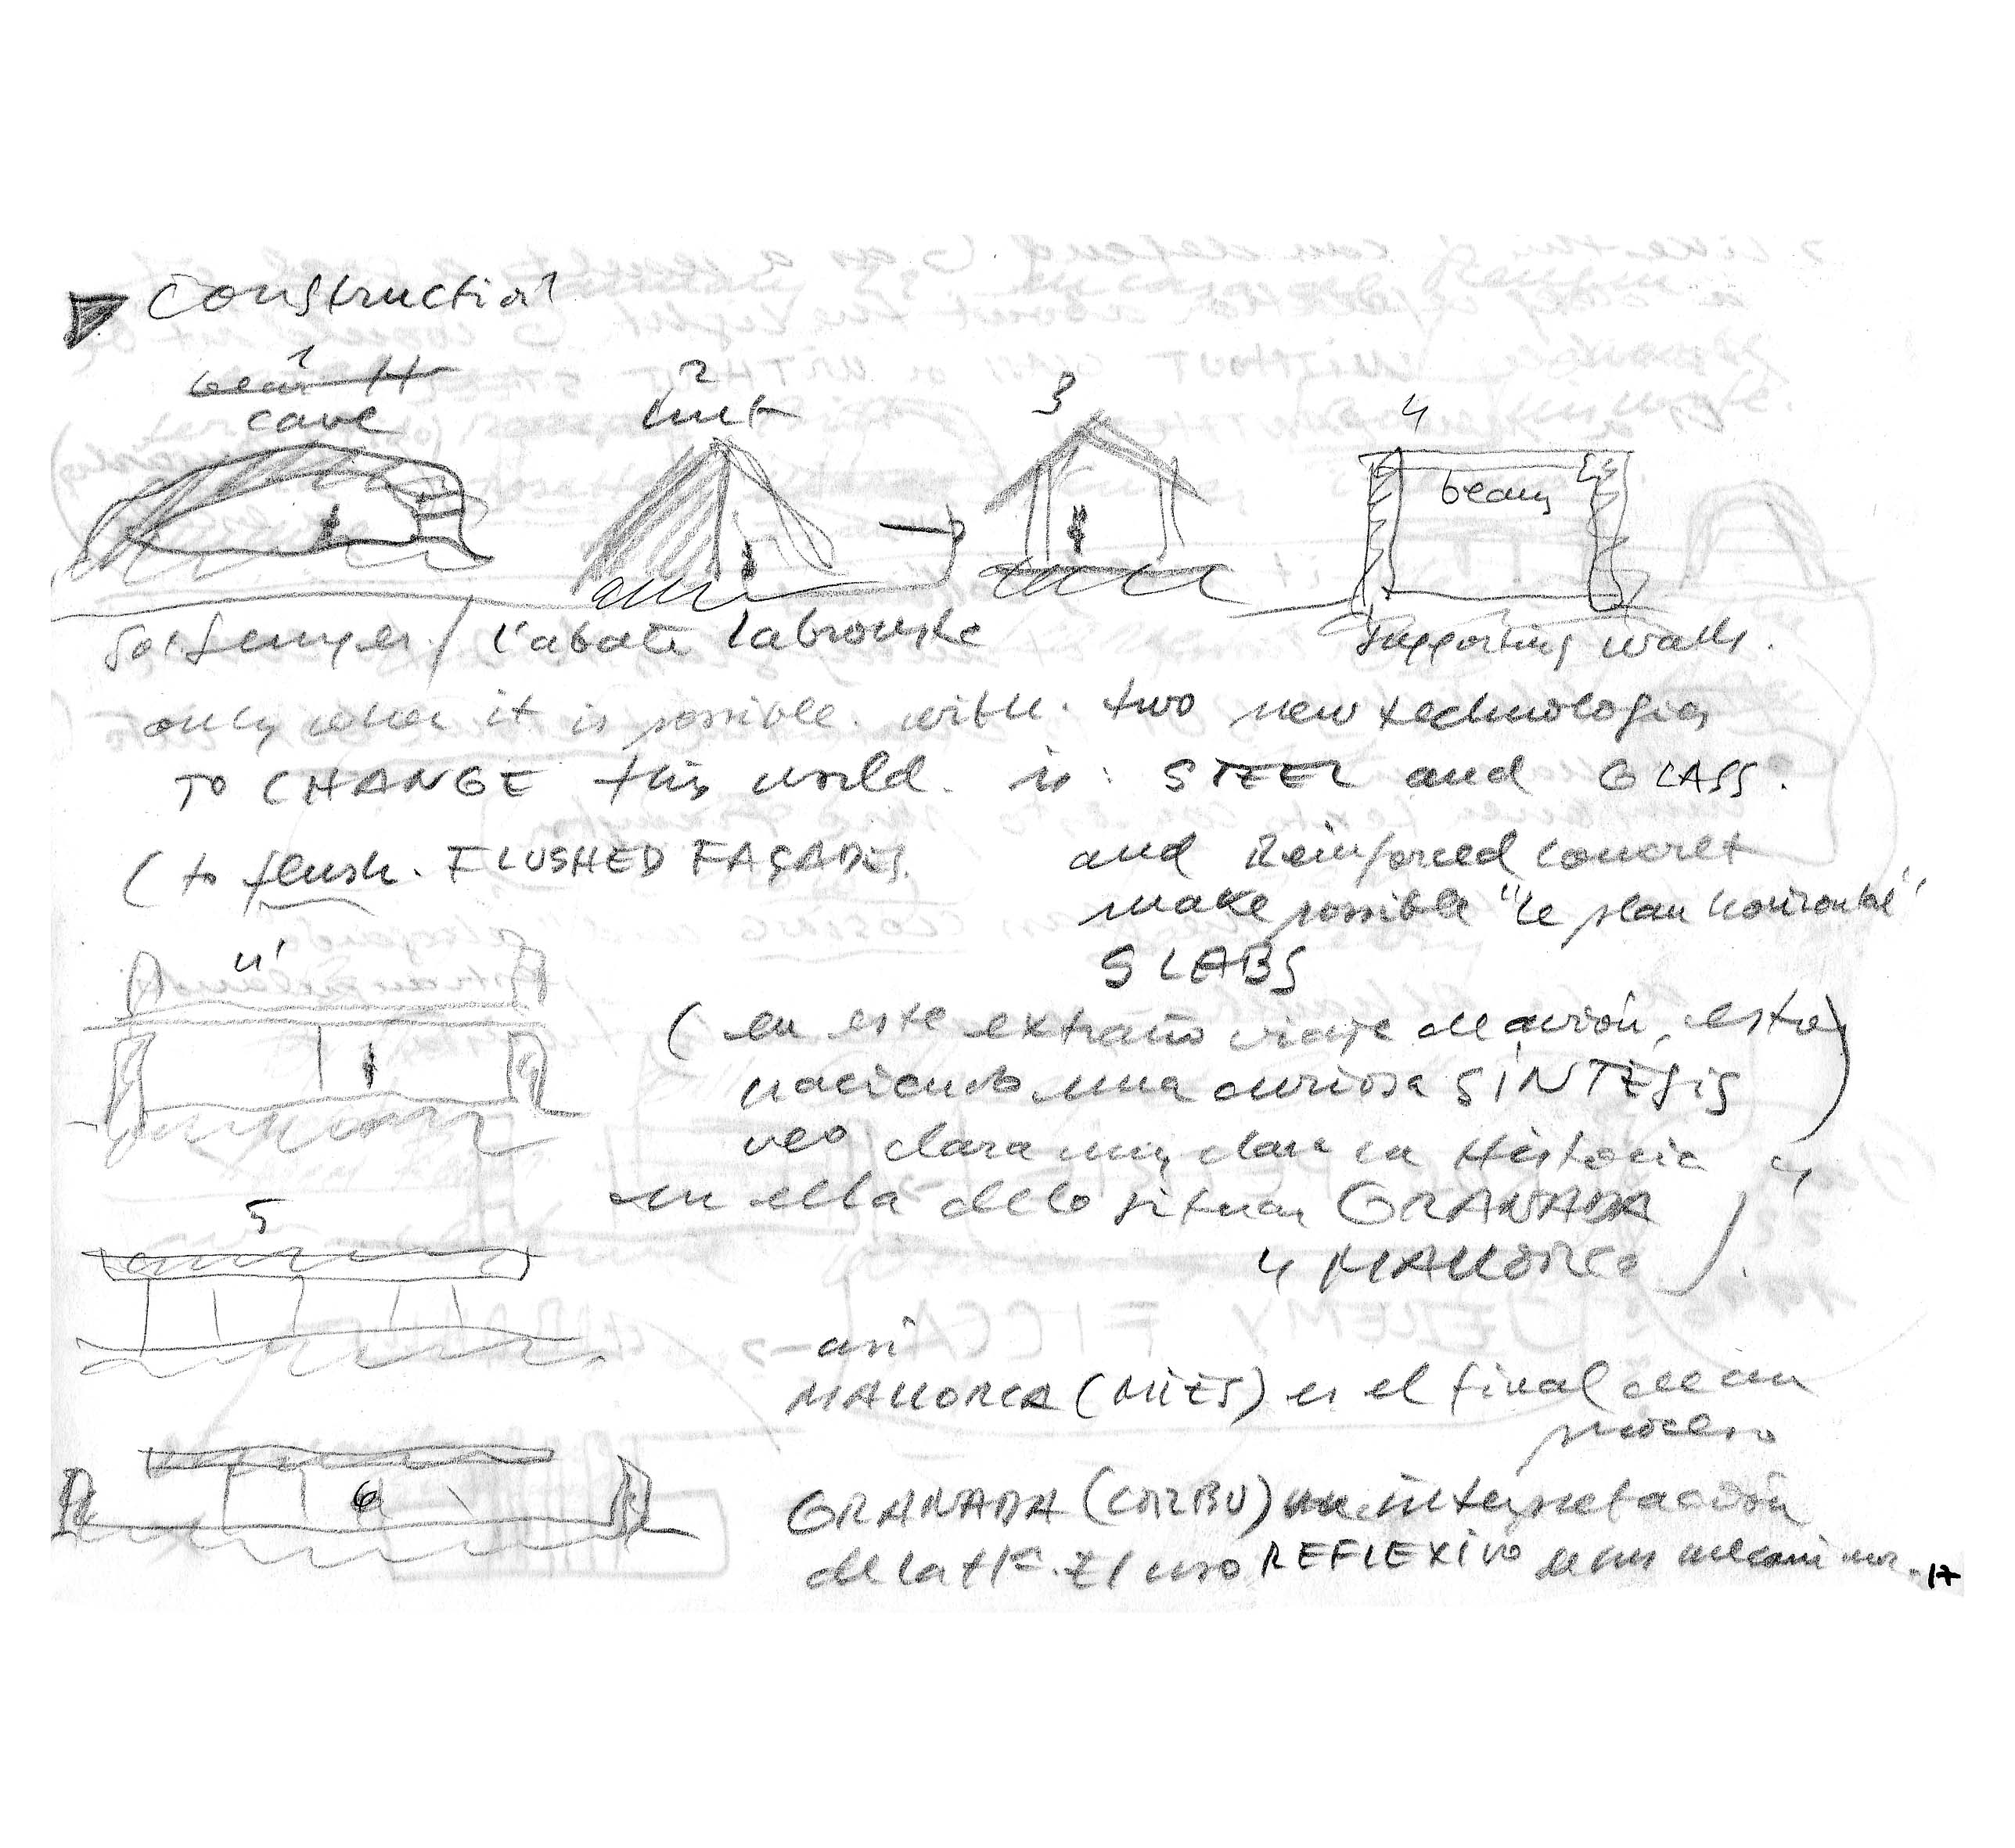 Construction
1
cave
2
hut
3
4
beam
Gotsemper. / l'abate Labrouste
supporting walls.
only when it is possible. with. two new technologies
TO CHANGE this world. is: STEEL and GLASS.
( to flush. FLUSHED FAÇADES.
and Reinforced concret
make possible "le plan horizontal"
SLABS
4'
( en este extraño viaje de avión, estoy
naciendo una curiosa SÍNTESIS
veo clara muy clara la Historia y
en ella debo situar GRANADA
y MALLORCA ).
5
así
MALLORCA (MIES) es el final de un
proceso
6
GRANADA (CORBU) una interpretación
de la Hª. El uso REFLEXIVO de sus mecanismos.
17